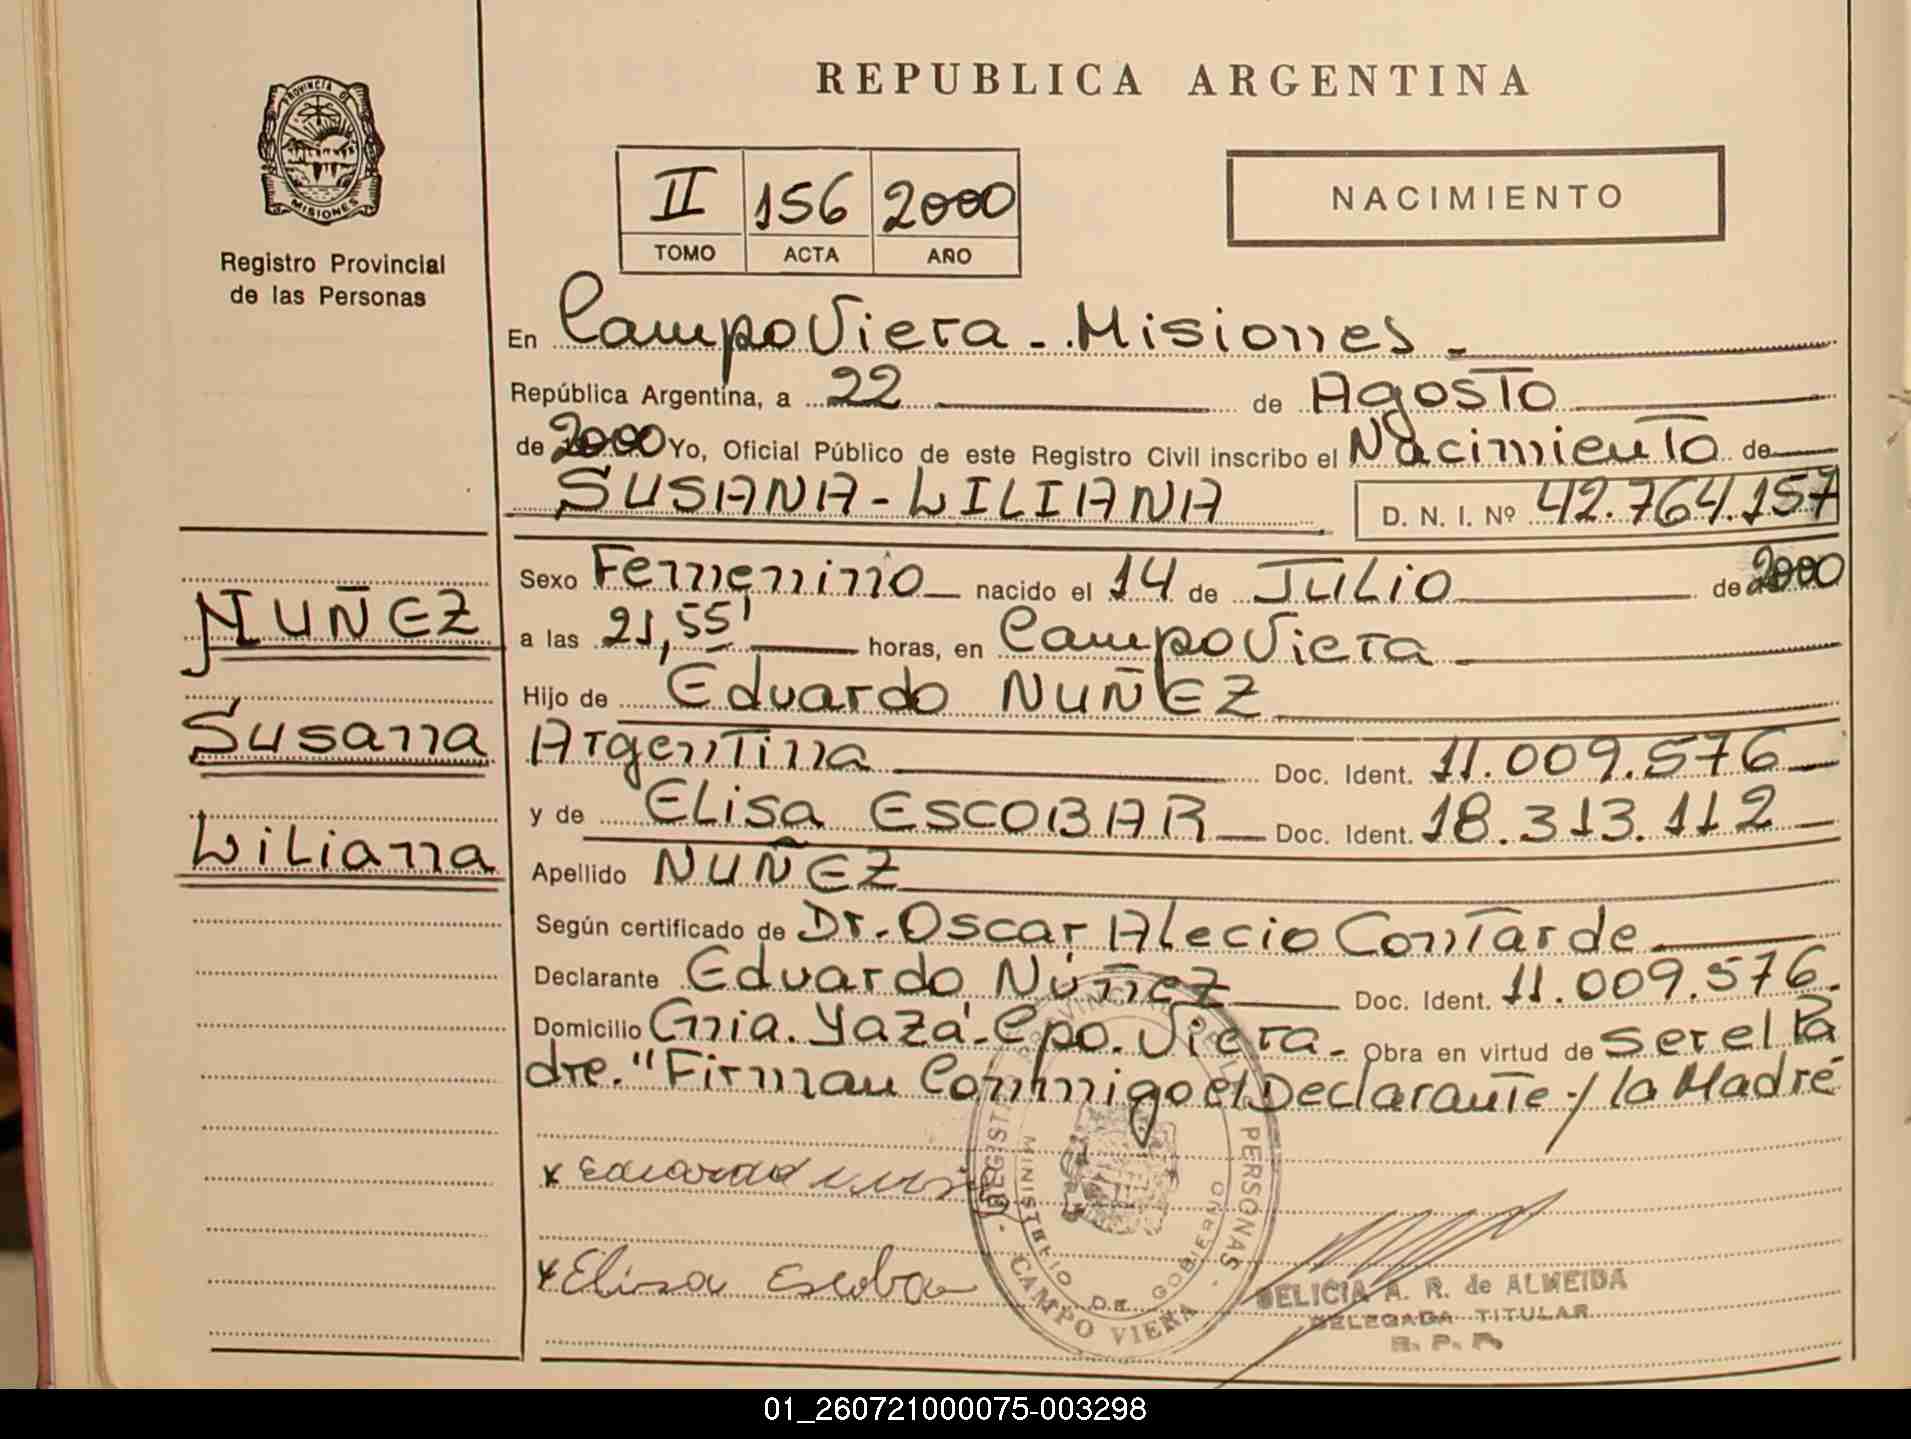 REPUBLICA ARGENTINA
PROVINCIA DE
MISIONES
Registro Provincial
de las Personas
II 156 2000
TOMO ACTA AÑO
NACIMIENTO
En Campo Viera - Misiones -
República Argentina, a 22 de Agosto
de 2000 Yo, Oficial Público de este Registro Civil inscribo el Nacimiento de
SUSANA - LILIANA D. N. I. Nº 42.764.157
Sexo Femenino nacido el 14 de Julio de 2000
a las 21,55' horas, en Campo Viera
Hijo de Eduardo NUÑEZ
Argentina Doc. Ident. 11.009.576
y de ELisa ESCOBAR Doc. Ident. 18.313.112
Apellido NUÑEZ
Según certificado de Dr. Oscar Alecio Contarde
Declarante Eduardo Núñez Doc. Ident. 11.009.576.
Domicilio Cnia. Yazá - Cpo. Viera - Obra en virtud de ser el Pa
dre. "Firman Conmigo el Declarante y la Madre
NUÑEZ
Susana
Liliana
x Eduardo
x Elisa Escobar
REGISTRO PROVINCIAL DE LAS PERSONAS
MINISTERIO DE GOBIERNO
- CAMPO VIERA -
DELICIA A. R. de ALMEIDA
DELEGADA TITULAR
R. P. P.
01_260721000075-003298